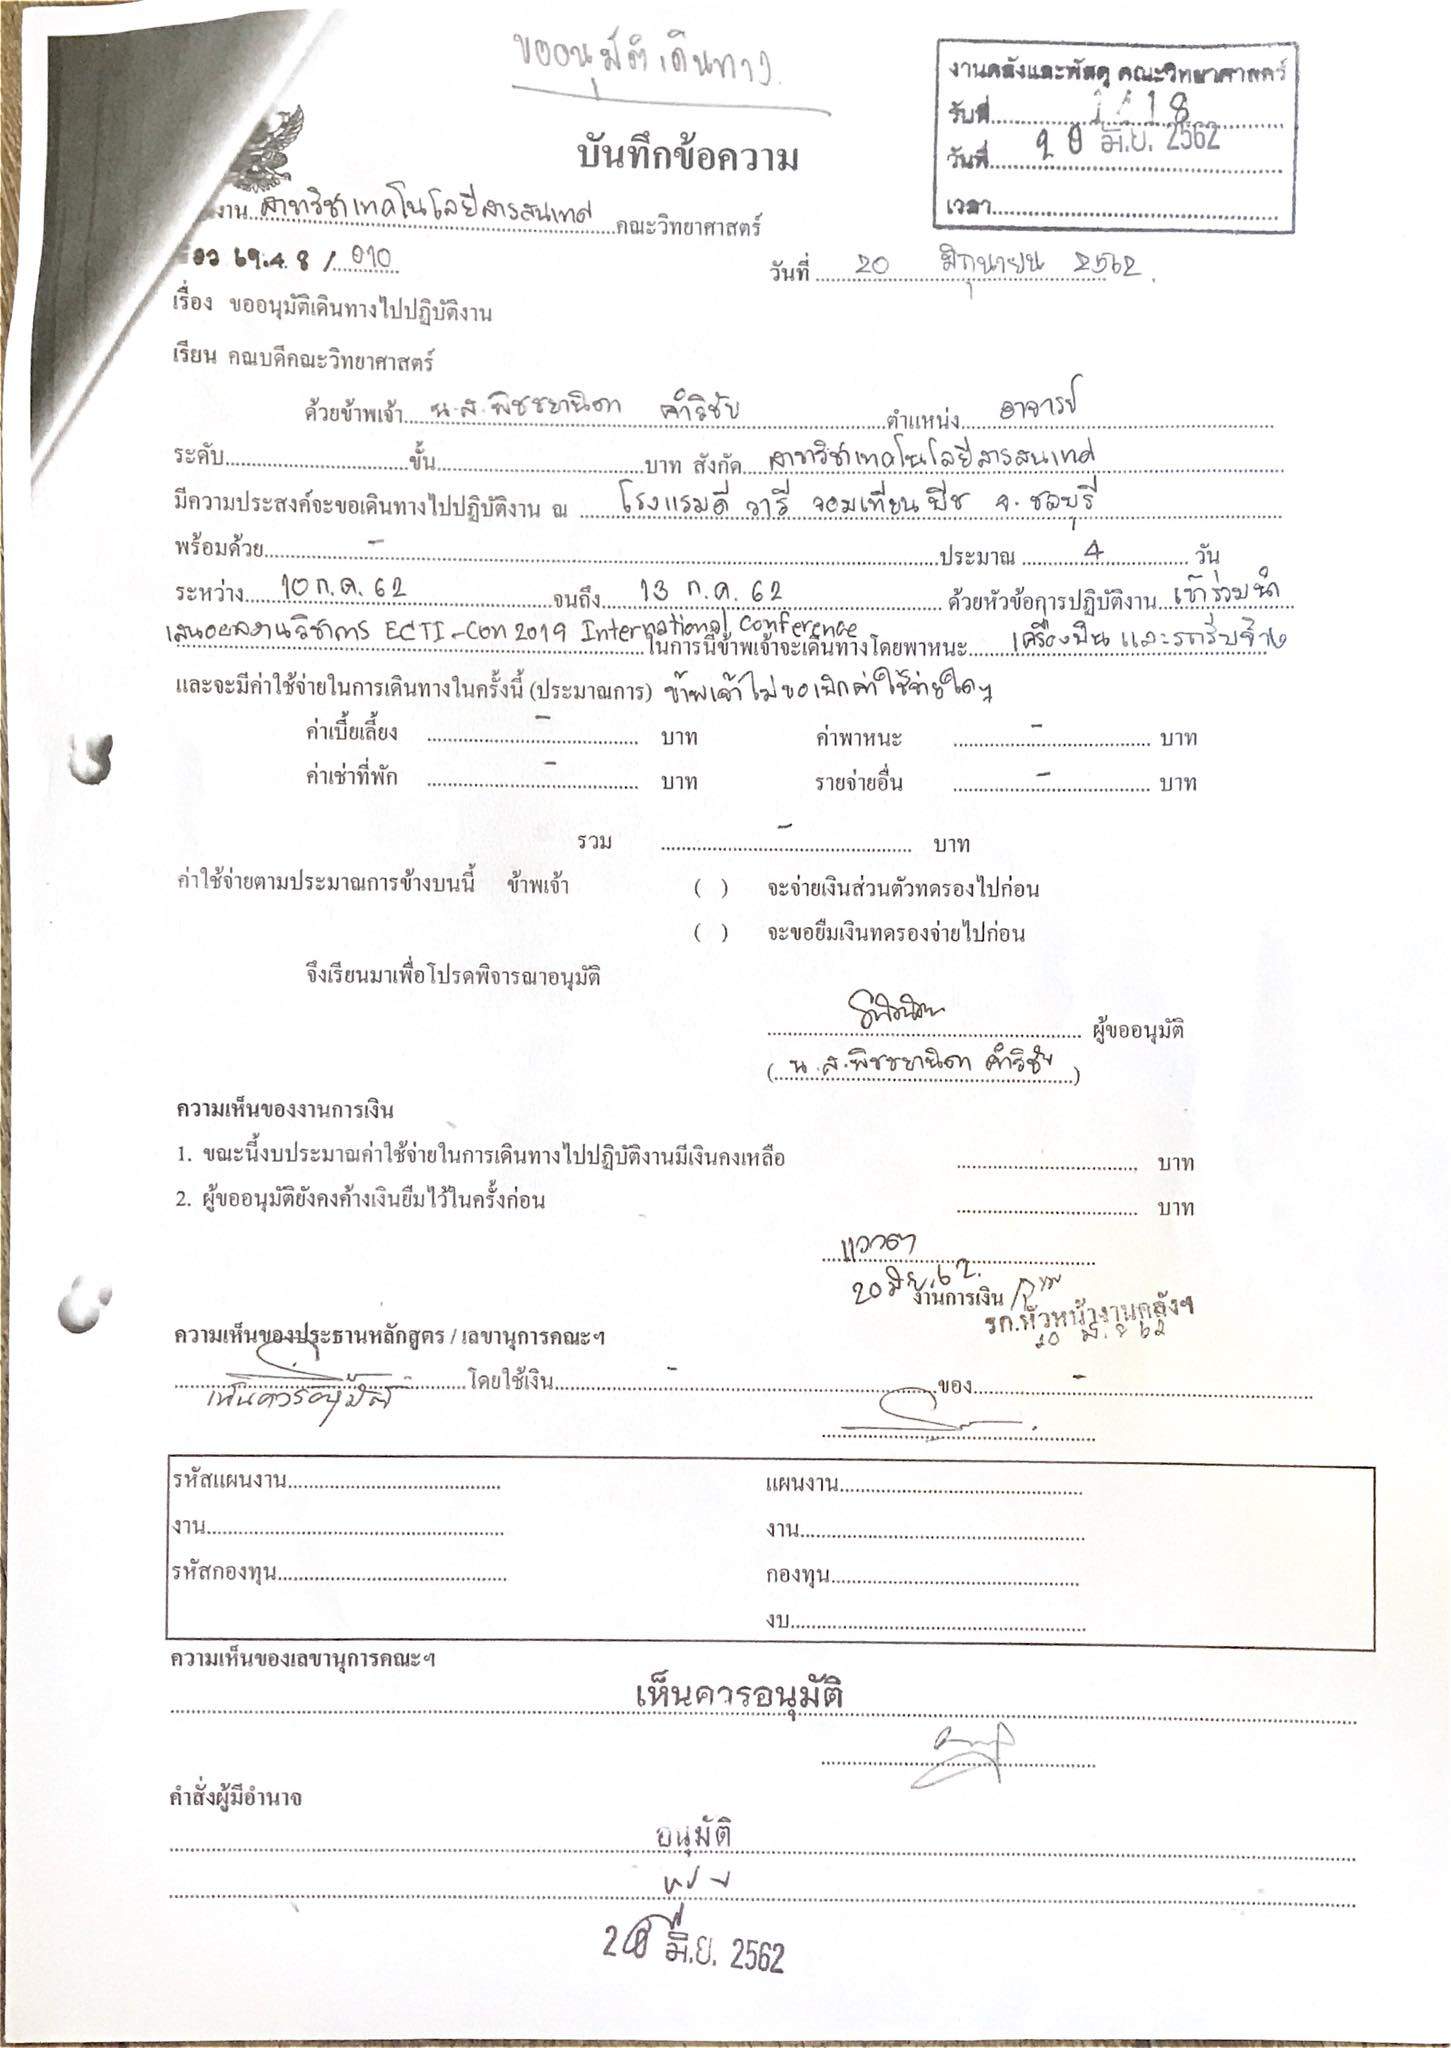 ขออนุมัติเดินทาง
งานคลังและพัสดุ คณะวิทยาศาสตร์
รับที่ 1418
วันที่ 20 มิ.ย. 2562
เวลา
บันทึกข้อความ
งาน สาขาวิชาเทคโนโลยีสารสนเทศ คณะวิทยาศาสตร์
อว 69.4.8 / 010
วันที่ 20 มิถุนายน 2562.
เรื่อง ขออนุมัติเดินทางไปปฏิบัติงาน
เรียน คณบดีคณะวิทยาศาสตร์
ด้วยข้าพเจ้า น.ส.พิชชยานิดา คำวิชัย ตำแหน่ง อาจารย์
ระดับ ขั้น บาท สังกัด สาขาวิชาเทคโนโลยีสารสนเทศ
มีความประสงค์จะขอเดินทางไปปฏิบัติงาน ณ โรงแรมดี วารี จอมเทียน บีช จ. ชลบุรี
พร้อมด้วย - ประมาณ 4 วัน
ระหว่าง 10 ก.ค. 62 จนถึง 13 ก.ค. 62 ด้วยหัวข้อการปฏิบัติงาน เข้าร่วมนำ
เสนอผลงานวิชาการ ECTI-Con 2019 International Conference ในการนี้ข้าพเจ้าจะเดินทางโดยพาหนะ เครื่องบิน และรถรับจ้าง
และจะมีค่าใช้จ่ายในการเดินทางในครั้งนี้ (ประมาณการ) ข้าพเจ้าไม่ขอเบิกค่าใช้จ่ายใดๆ
ค่าเบี้ยเลี้ยง - บาท ค่าพาหนะ - บาท
ค่าเช่าที่พัก - บาท รายจ่ายอื่น - บาท
รวม - บาท
ค่าใช้จ่ายตามประมาณการข้างบนนี้ ข้าพเจ้า ( ) จะจ่ายเงินส่วนตัวทดรองไปก่อน
( ) จะขอยืมเงินทดรองจ่ายไปก่อน
จึงเรียนมาเพื่อโปรดพิจารณาอนุมัติ
ผู้ขออนุมัติ
(น.ส.พิชชยานิดา คำวิชัย)
ความเห็นของงานการเงิน
1. ขณะนี้งบประมาณค่าใช้จ่ายในการเดินทางไปปฏิบัติงานมีเงินคงเหลือ บาท
2. ผู้ขออนุมัติยังคงค้างเงินยืมไว้ในครั้งก่อน บาท
แววตา
20 มิย. 62.
งานการเงิน
รก.หัวหน้างานคลังฯ
20 มิ.ย 62
ความเห็นของประธานหลักสูตร / เลขานุการคณะฯ
เห็นควรอนุมัติ โดยใช้เงิน - ของ -
รหัสแผนงาน แผนงาน
งาน งาน
รหัสกองทุน กองทุน
งบ
ความเห็นของเลขานุการคณะฯ
เห็นควรอนุมัติ
คำสั่งผู้มีอำนาจ
อนุมัติ
มิ.ย. 2562